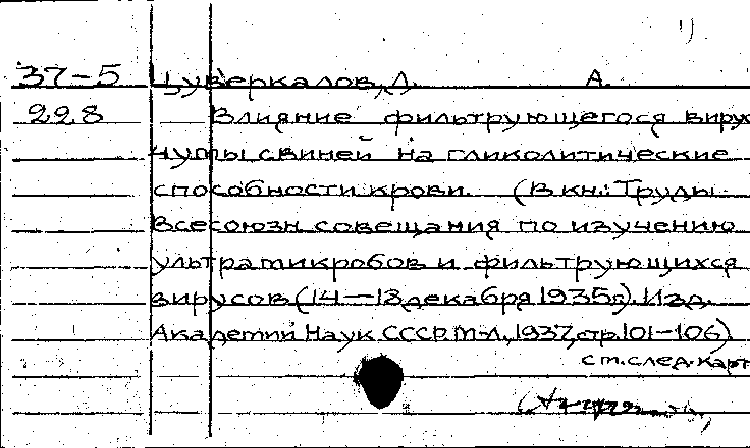 1)
37-5 Цуверкалов, Д. А.
228 Влияние фильтрующегося вирус
чумы свиней на гликолитические
способности крови. (В кн.: Труды
Всесоюзн. совещания по изучению
ультрамикробов и фильтрующихся
вирусов (14-18 декабря 1935г). Изд.
Академии Наук СССР. М-Л., 1937, стр. 101-106).
см. след. карт